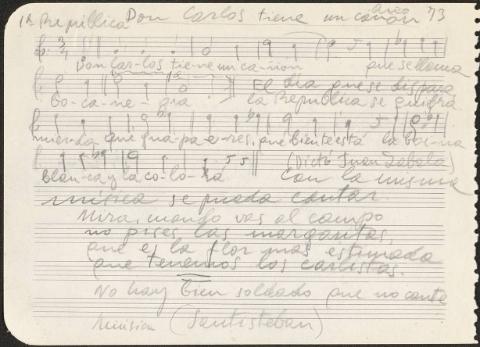 1ª República Don Carlos tiene un cañón 73
Don Car-los tie-ne un ca-ñon que se llama
Bo-ca-ne-gra El día que se dispara
la República se
que gua-pa e-res, que bien te está la boi-na
blan-ca y la co-lo-rá (Dictó Juan Zabala)
Con la misma
música se puede cantar
Mira, cuando vas al campo
no pises las margaritas,
que es la flor más estimada
que tenemos los carlistas.
No hay bien soldado que no cante
música (Santisteban)